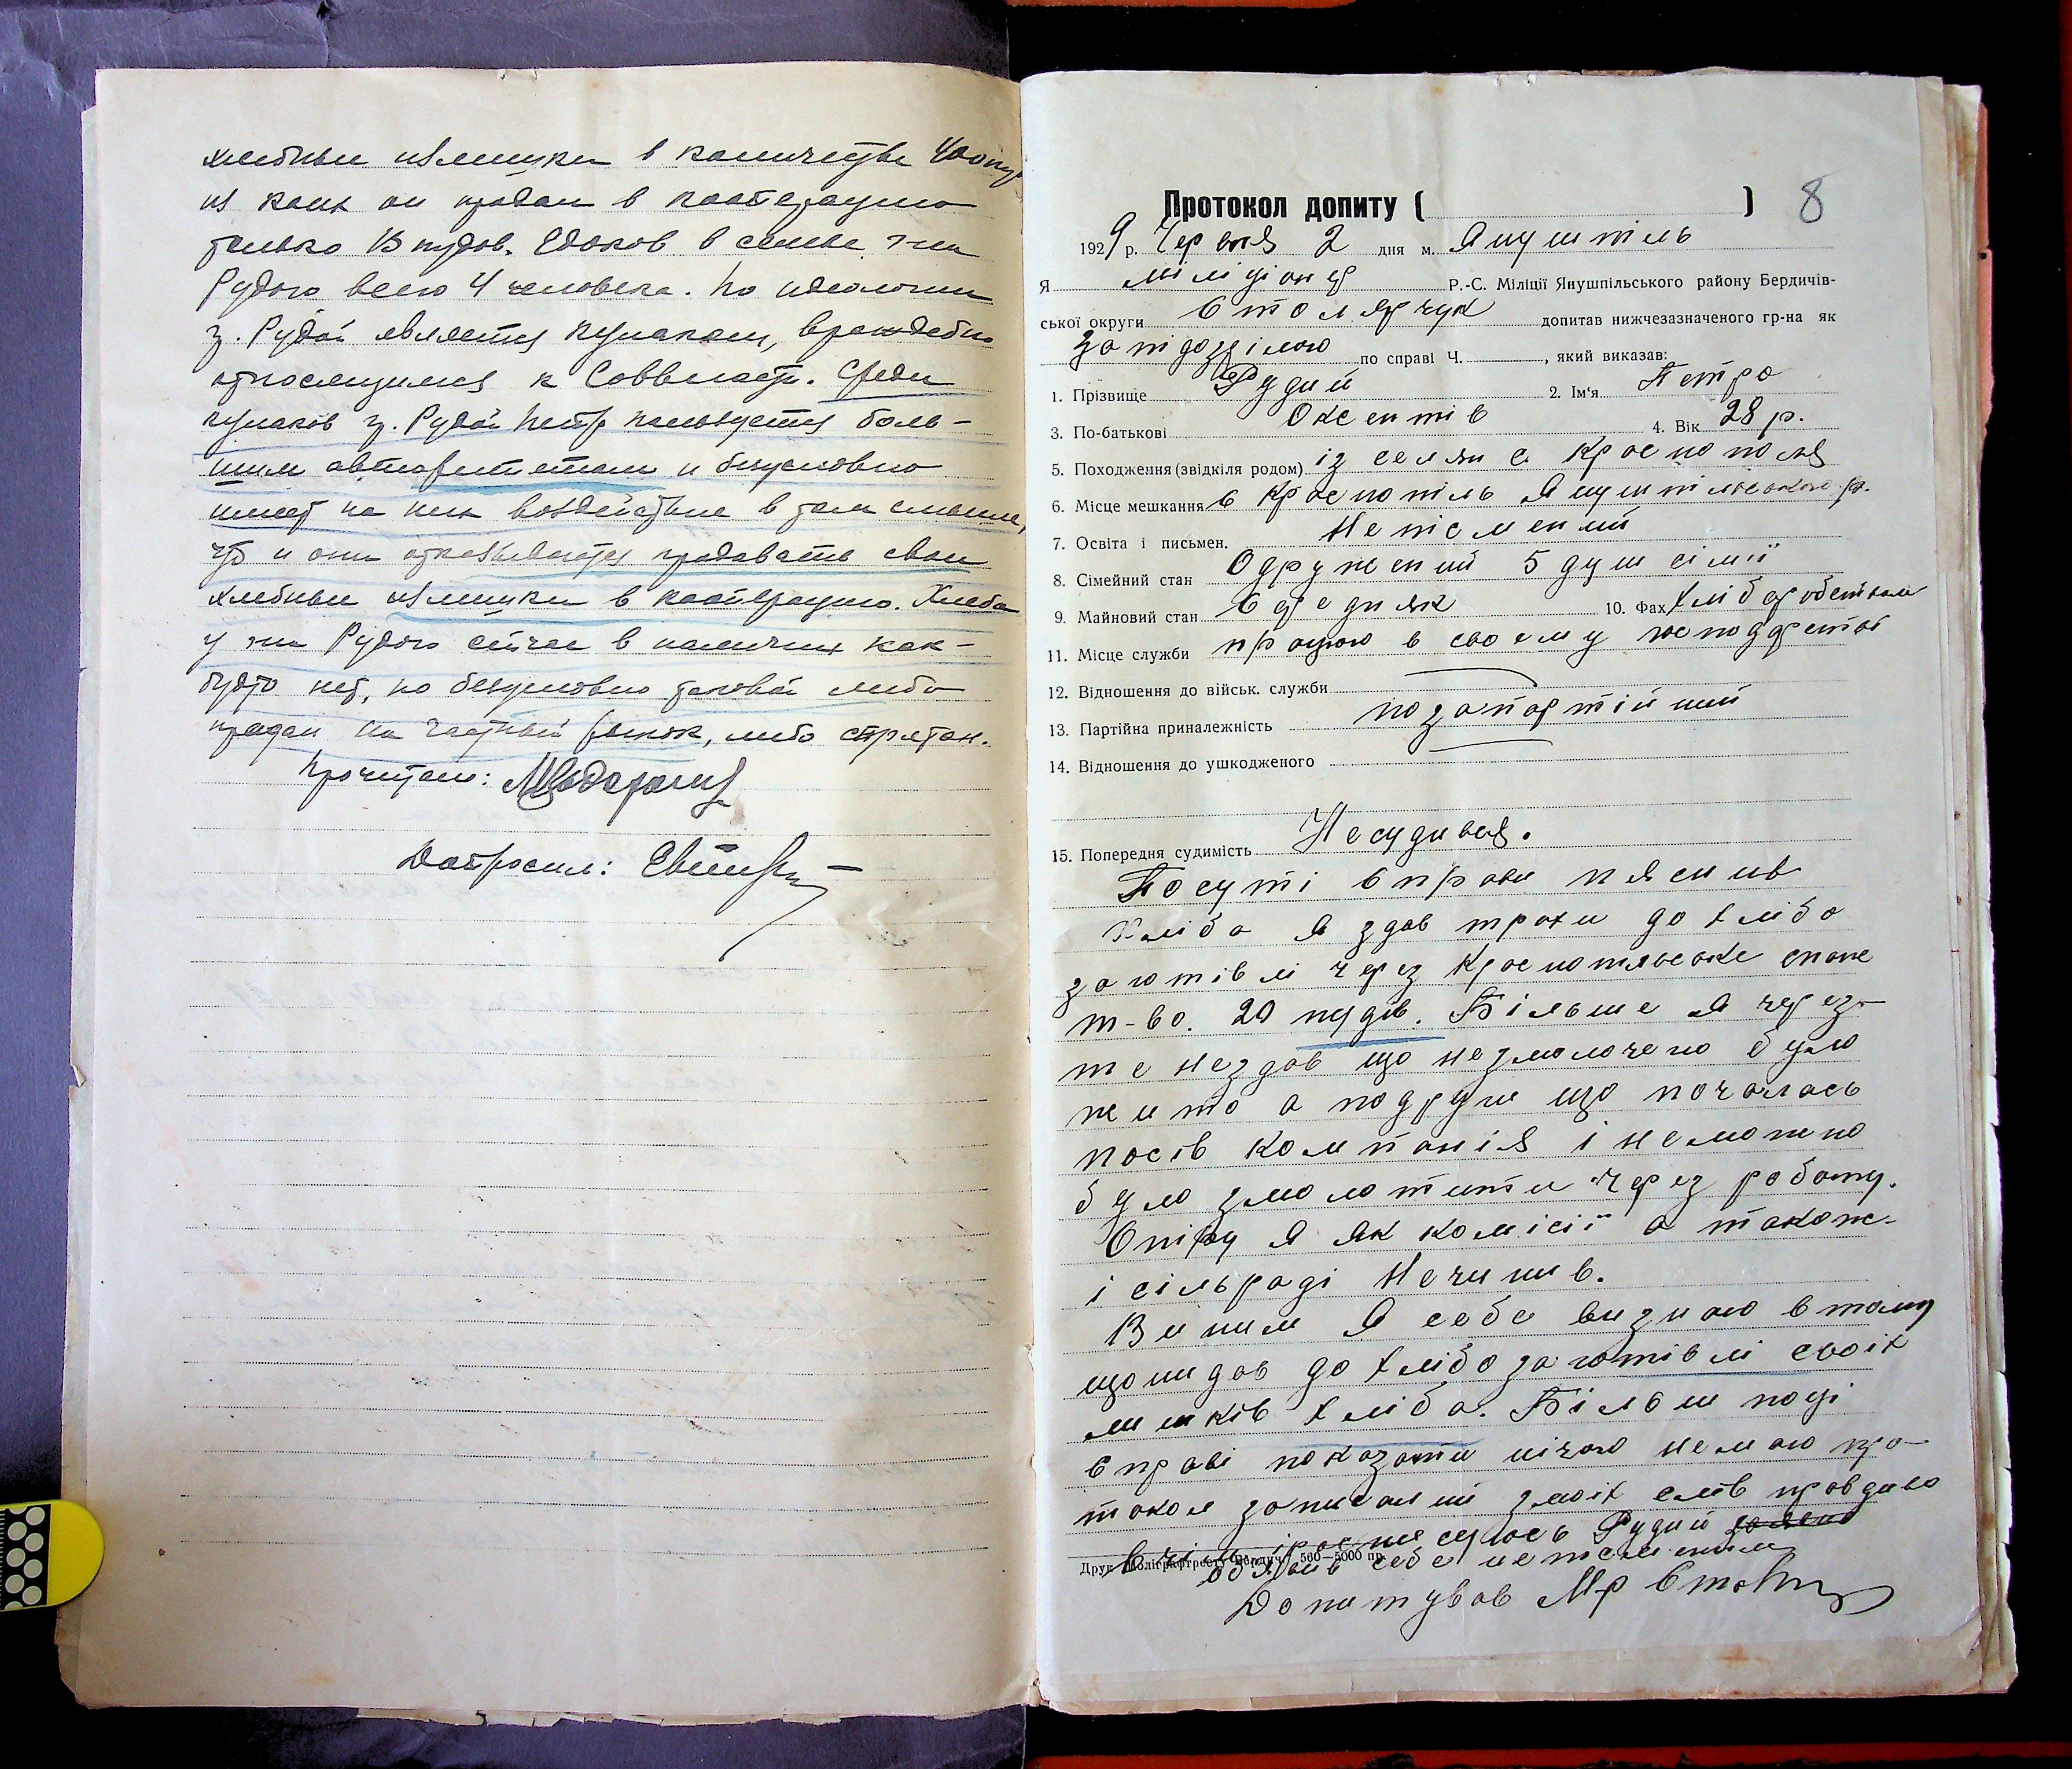 хлебные излишки в количестве 400 пуд
из коих он продал в кооперацию
только 15 пудов. Едоков в семье г-на
Рудого всего 4 человека. По идеологии
г. Рудой является кулаком, враждебно
относящимся к Соввласти. Среди
кулаков г. Рудой Петр пользуется боль-
шим авторитетом и безусловно
имеет на них воздействие в том смысле,
что и они отказываются продавать свои
хлебные излишки в кооперацию. Хлеба
у г-на Рудого сейчас в наличии как-
будто нет, но безусловно таковой либо
продан на частный рынок, либо спрятан.
Прочитано:
Допросил:
Протокол допиту ( ) 8
1929 р. Червня 2 дня м. Янушпіль
Я міліціонер Р.-С. Міліції Янушпільського району Бердичів-
ської округи Столярчук допитав нижчезазначеного гр-на як
запідозріного по справі Ч. , який виказав:
1. Прізвище Рудий 2. Ім'я Петро
3. По-батькові Оксентів 4. Вік 28 р.
5. Походження (звідкіля родом) із селян с. Краснополя
6. Місце мешкання с Краснопіль Янушпільського р.
7. Освіта і письмен. Неписьмений
8. Сімейний стан Одружений 5 душ сімії
9. Майновий стан Середняк 10. Фах Хліборобством
11. Місце служби працюю в своєму господарстві
12. Відношення до військ. служби
13. Партійна приналежність позапартійний
14. Відношення до ушкодженого
15. Попередня судимість Несудився.
Посуті справи пяснив
Хліба я здав трохи до хлібо
заготівлі через Краснопільське спож
т-во. 20 пудів. Більше я через-
те нездав що незмолочено було
жито а подруге що почалась
посів компанія і неможно
було змолотити через роботу.
Опіру я як комісії а також-
і сільраді Нечинив.
Виним я себе визнаю втому
що нидав до хлібозаготівлі своіх
лишків хліба. Більш поці
справі показати нічого немаю про-
токол записаний змоіх слів правдиво
в чім і росписуюсь Рудий
Друк. Поліграфтресту Бердич. 560—5000 пр.
обявив себе неписьменим
Допитував